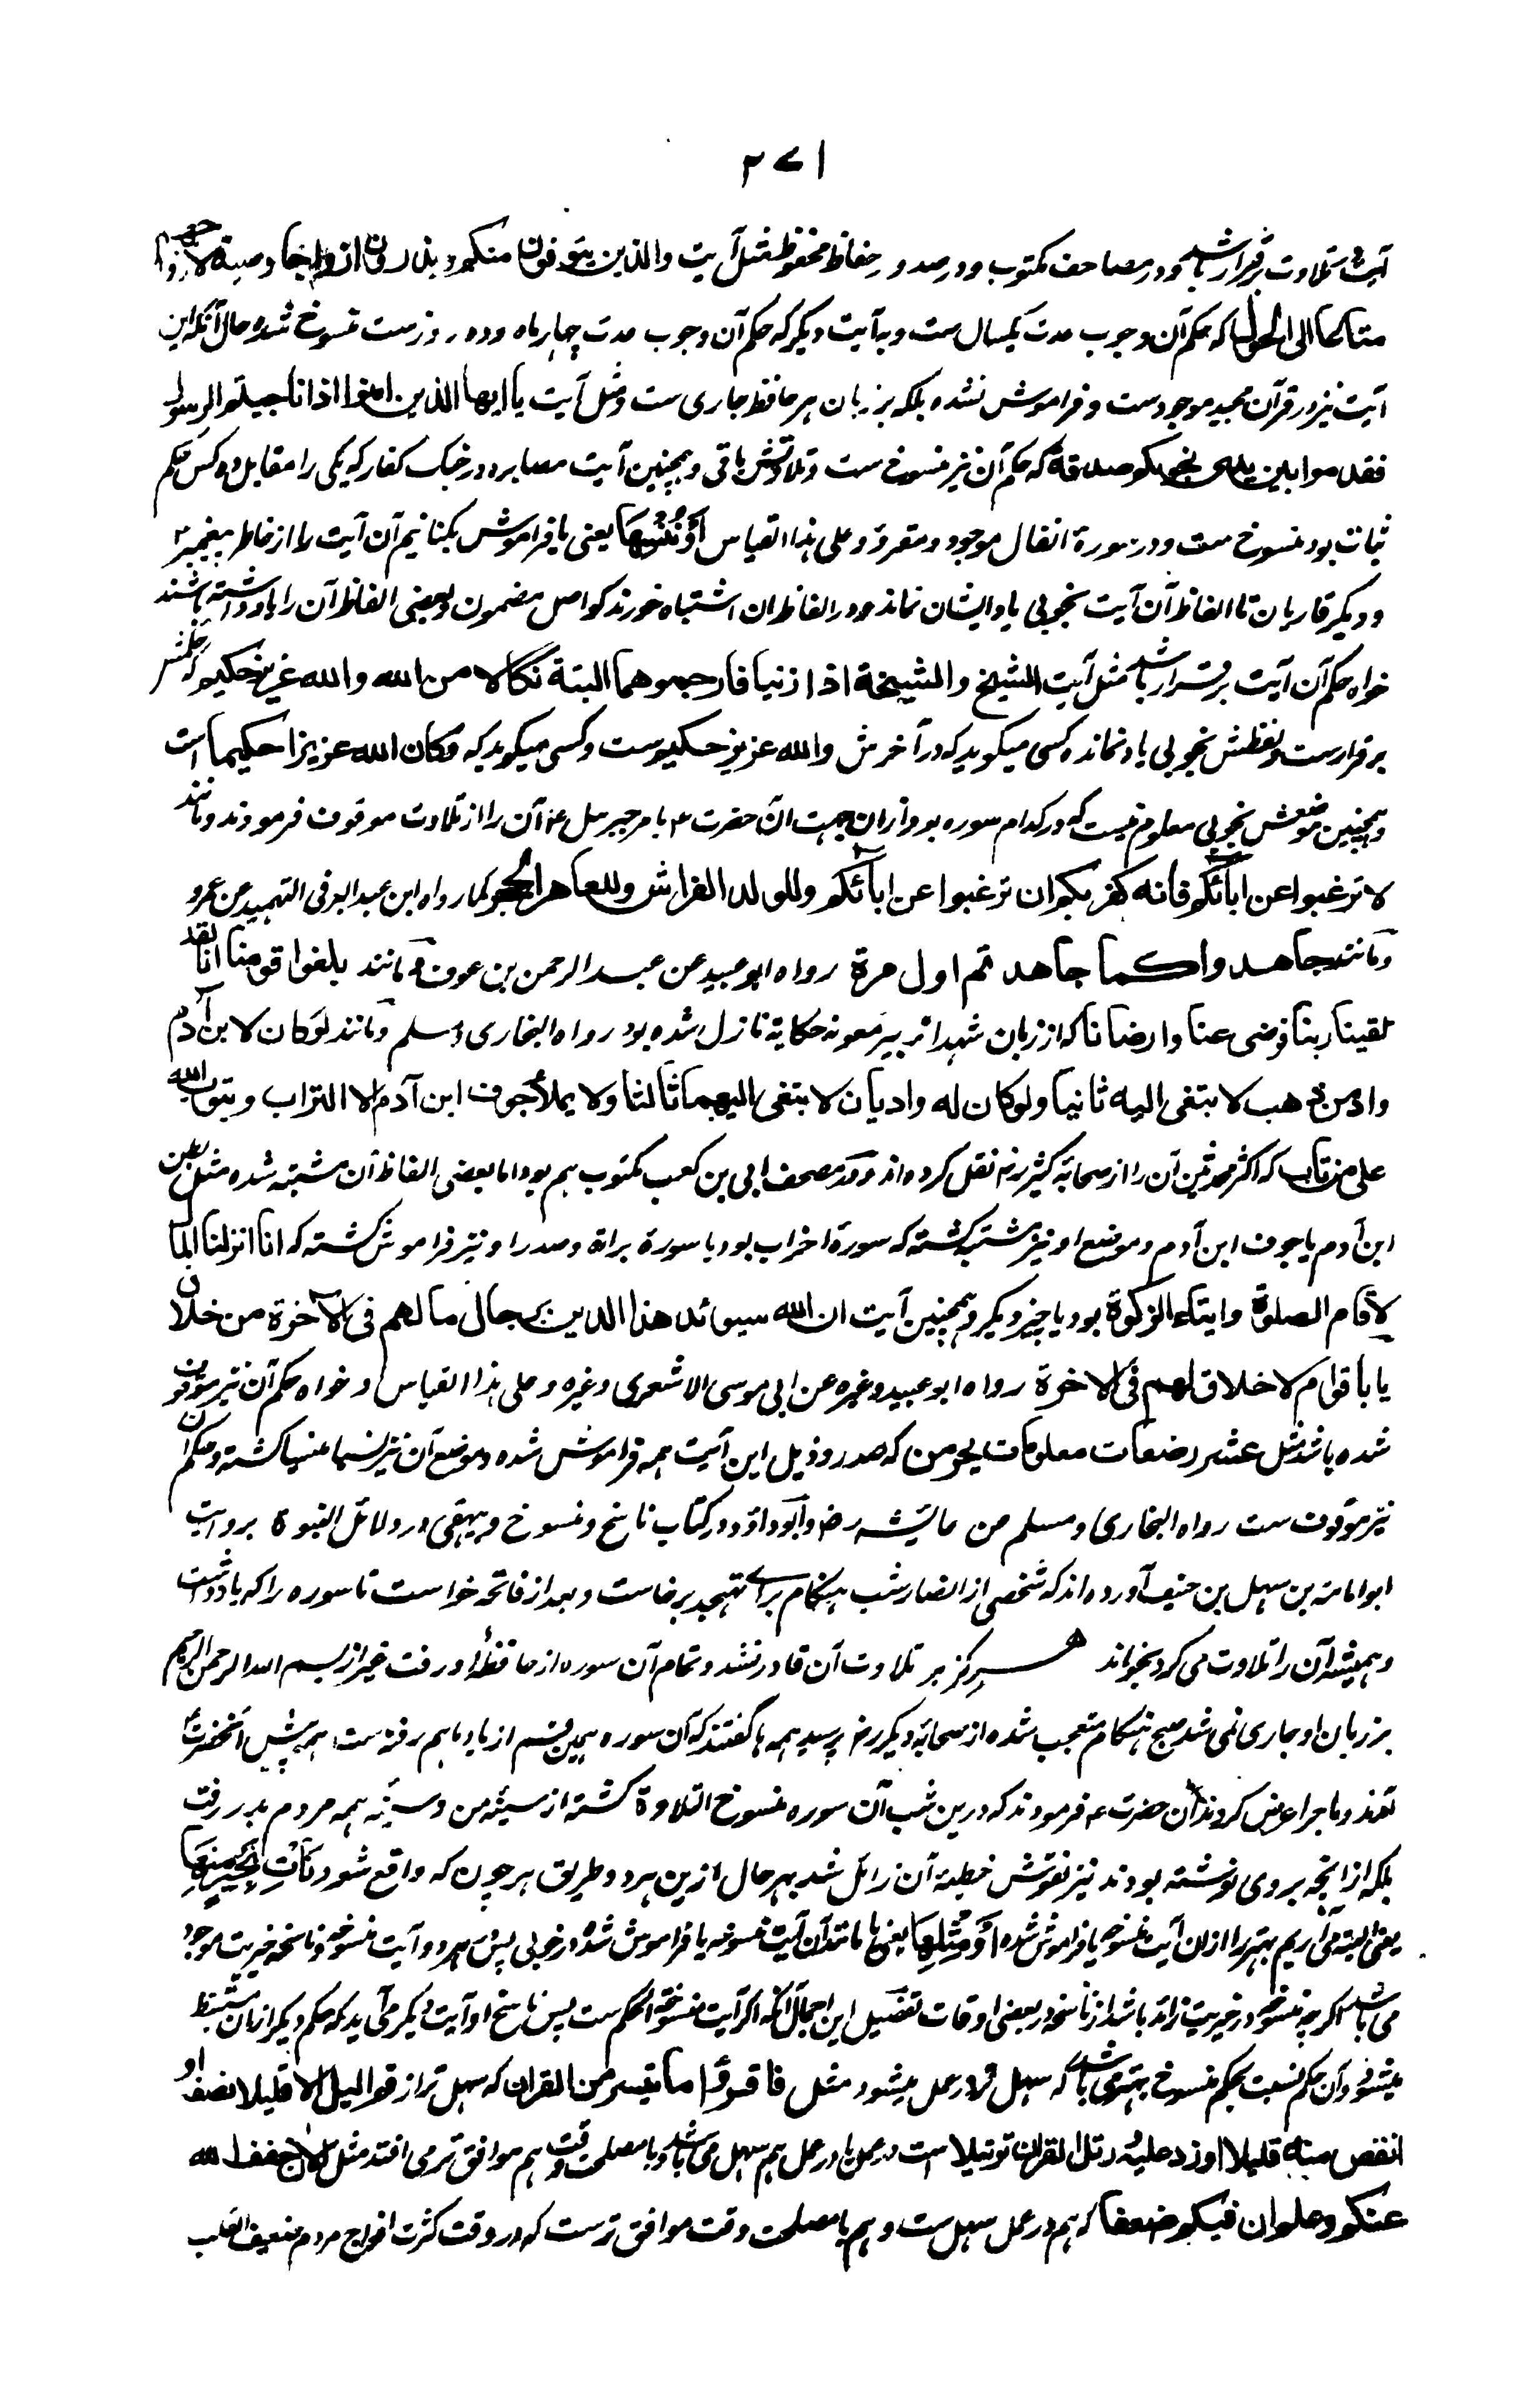 ۲۷۱
آیت بتلاوت برقرار باشد و در مصاحف مکتوب و در صدور حفاظ محفوظ مثل آیت والذین یتوفون منکم و یذرون ازواجا وصیة لازواجهم
متاعا الی الحول که حکم آن وجوب عدت یکسال ست و بآیت دیگر که حکم آن وجوب عدت چهار ماه و ده روزست منسوخ شده حال آنکه این
آیت نیز در قرآن مجید موجودست و فراموش نشده بلکه بر زبان هر حافظ جاری ست و مثل آیت یا ایها الذین امنوا اذا ناجیتم الرسول
فقدموا بین یدی نجویکم صدقة که حکم آن نیز منسوخ ست و تلاوتش باقی و همچنین آیت مصابره در جنگ کفار که یکی را مقابل ده کس حکم
ثبات بود منسوخ ست و در سورۀ انفال موجود و مقرو و علی هذا القیاس اَوْ نُنْسِهَا یعنی یا فراموش بکنانیم آن آیت را از خاطر پیغمبر
و دیگر قاریان تا الفاظ آن آیت بخوبی یاد ایشان نماند و در الفاظ ان اشتباه خورند گو اصل مضمون و بعضی الفاظ آن را یاد داشته باشند
خواه حکم آن آیت برقرار باشد مثل آیت الشیخ والشیخة اذا زنیا فارجموهما البتة نکالا من الله والله عزیز حکیم که حکمش
برقرارست و لفظش بخوبی یاد نمانده کسی میگوید که در آخرش والله عزیز حکیم ست و کسی میگوید که وکان الله عزیزا حکیما است
و همچنین موضعش بخوبی معلوم نیست که در کدام سوره بود و ازان جهت آن حضرت ع بامر جبرئیل ع آن را از تلاوت موقوف فرمودند و مانند
لا ترغبوا عن ابائکم فانه کفر بکم ان ترغبوا عن ابائکم وللولد الفراش وللعاهر الحجر کما رواه ابن عبد البر فی التمهید عن عمرو
و مانند جاهدوا کما جاهدتم اول مرة رواه ابو عبید عن عبد الرحمن بن عوف و مانند بلغوا قومنا انا لقد
لقینا ربنا فرضی عنا وارضانا که از زبان شهداء بیر معونه حکایة نازل شده بود رواه البخاری و مسلم و مانند لو کان لابن آدم
وادمن ذهب لابتغی الیه ثانیا ولو کان له وادیان لابتغی الیهما ثالثا ولا یملأ جوف ابن آدم الا التراب ویتوب الله
علی من تاب که اکثر محدثین آن را از صحابۀ کثیر رض نقل کرده اند و در مصحف ابی بن کعب مکتوب هم بود اما بعضی الفاظ آن مشتبه شده مثل بطن
ابن آدم یا جوف ابن آدم و موضع او نیز مشتبه گشته که سورۀ احزاب بود یا سورۀ براءة و صدر او نیز فراموش گشته که انا انزلنا المال
لاقام الصلوة وایتاء الزکوة بود یا چیز دیگر و همچنین آیت ان الله سیوئد هذا الدین برجال ما لهم فی الآخرة من خلاق
یا باقوام لاخلاق لهم فی الاخرة رواه ابو عبید و غیره عن ابی موسی الاشعری وغیره و علی هذا القیاس و خواه حکم آن نیز موقوف
شده باشد مثل عشر رضعات معلومات یحرمن که صدر و ذیل این آیت همه فراموش شده و موضع آن نیز نسیا منسیا گشته و حکم آن
نیز موقوف ست رواه البخاری و مسلم من عائشه رض و ابو داؤد در کتاب ناسخ و منسوخ و بیهقی در دلائل النبوة بروایت
ابو امامه بن سهل بن حنیف آورده اند که شخصی از انصار شب هنگام برای تهجد برخاست و بعد از فاتحه خواست تا سوره را که یاد داشت
و همیشه آن را تلاوت می کرد بخواند هرگز بر تلاوت آن قادر نشد و تمام آن سوره از حافظۀ او رفت غیر از بسم الله الرحمن الرحیم
بر زبان او جاری نمی شد صبح هنگام متعجب شده از صحابۀ دیگر رض پرسید همه ها گفتند که آن سوره بهمین قسم از یاد ما هم رفته ست همه پیش آنحضرت
آمدند و ماجرا عرض کردند آن حضرت ع فرمودند که درین شب آن سوره منسوخ التلاوة گشته از سینۀ من و سینۀ همه مردم بدر رفت
بلکه از آنچه بروی نوشته بودند نیز نقوش خطیۀ آن زائل شد بهر حال ازین هر دو طریق هر چون که واقع شود نَأْتِ بِخَیْرٍ مِنْهَا
یعنی البته می آریم بهتر را ازان آیت منسوخه یا فراموش شده اَوْ مِثْلِهَا یعنی یا مانند آن آیت منسوخه یا فراموش شده در خوبی پس هر دو آیت منسوخه و ناسخه خیریت موجود
می باشد اگرچه منسوخه در خیریت زائد باشد از ناسخه در بعضی اوقات تفصیل این اجمال آنکه اگر آیت منسوخة الحکم ست پس ناسخ او آیت دیگر می آید که حکم دیگر ازان مستنبط
میشود و آن حکم نسبت بحکم منسوخ بهتر می باشد که سهل تر در عمل میشود مثل فاقرؤا ما تیسر من القران که سهل تر از قم اللیل الا قلیلا نصفه او
انقص منه قلیلا او زد علیه و رتل القران ترتیلا است در عمل یا در عمل هم سهل می باشد و با مصلحت وقت هم موافق تر می افتد مثل الان خفف الله
عنکم وعلم ان فیکم ضعفا که هم در عمل سهل ست و هم با مصلحت وقت موافق ترست که در وقت کثرت افواج مردم ضعیف القلب